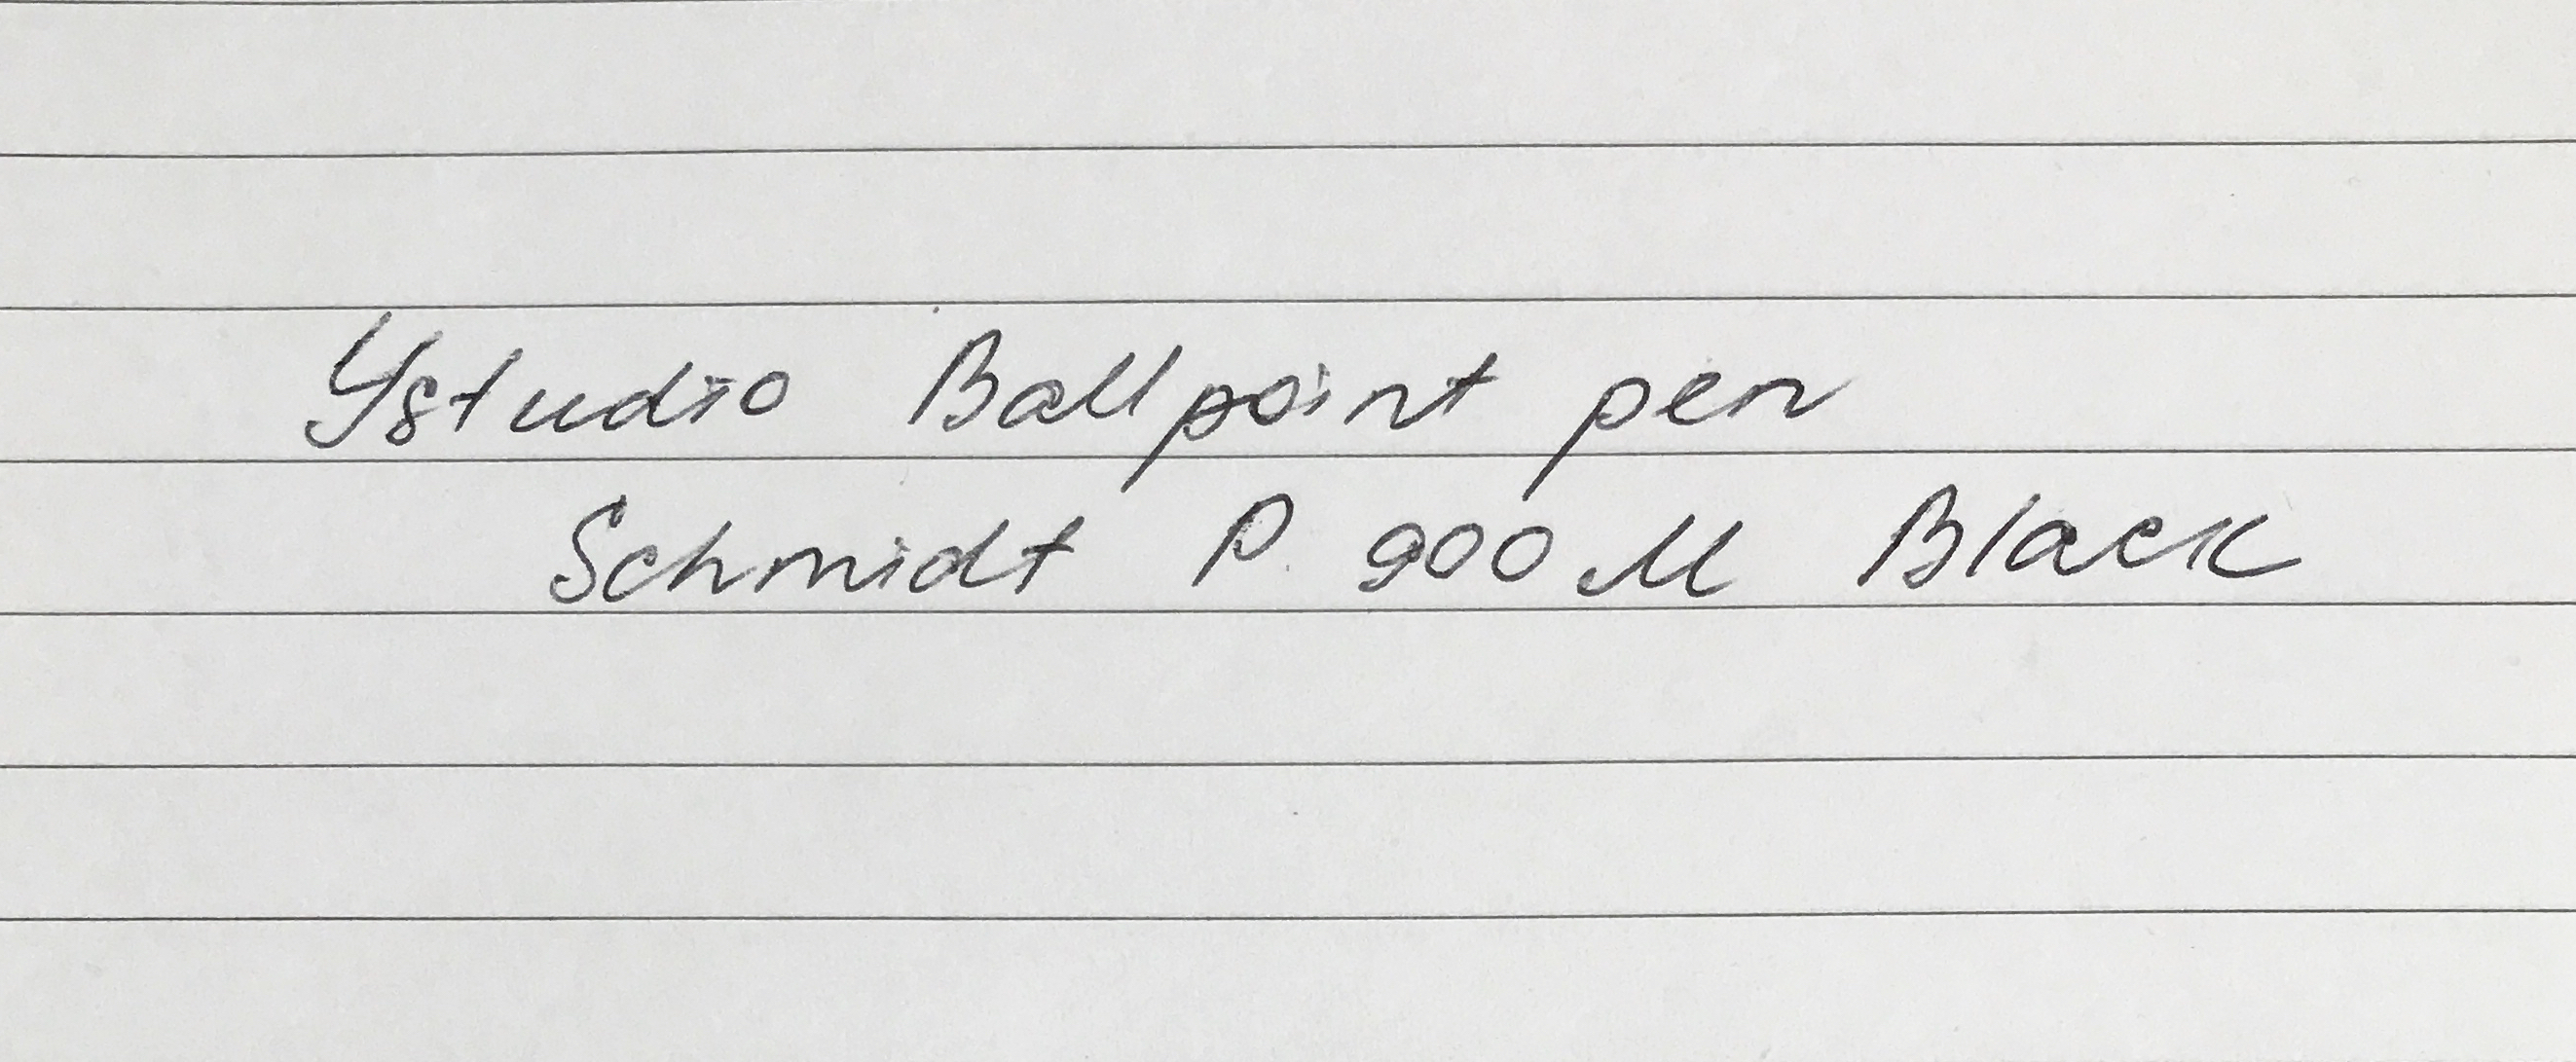 Ystudio Ballpoint pen
Schmidt P. 900 M Black